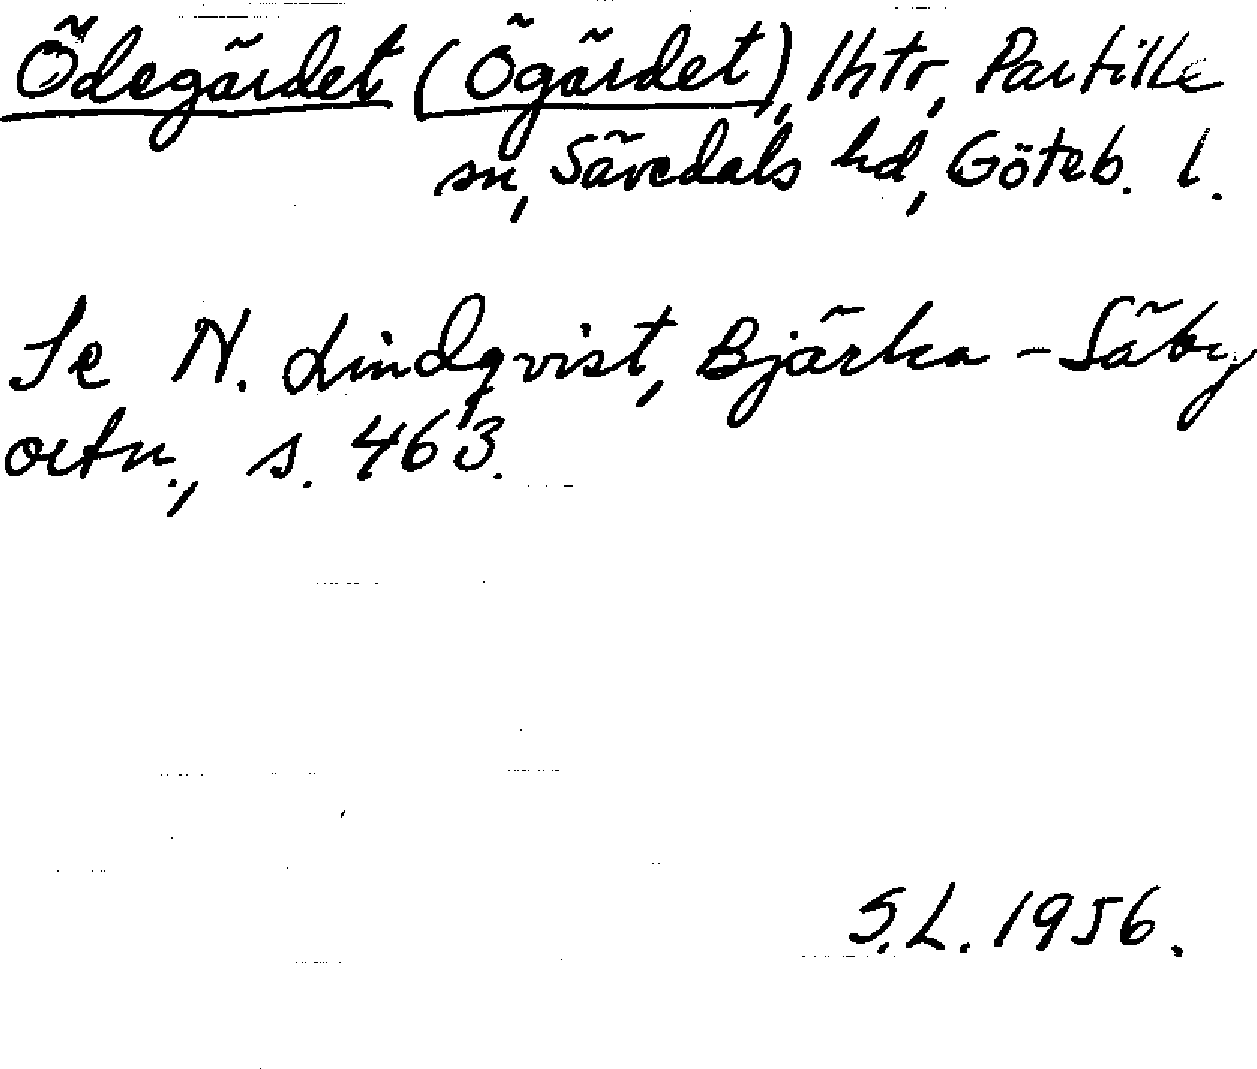 Ödegärdet (Ögärdet), lhtr, Partille
sn, Sävedals hd, Göteb. l.
Se N. Lindqvist, Bjärka-Säby
ortn., s. 463.
S.L. 1956.